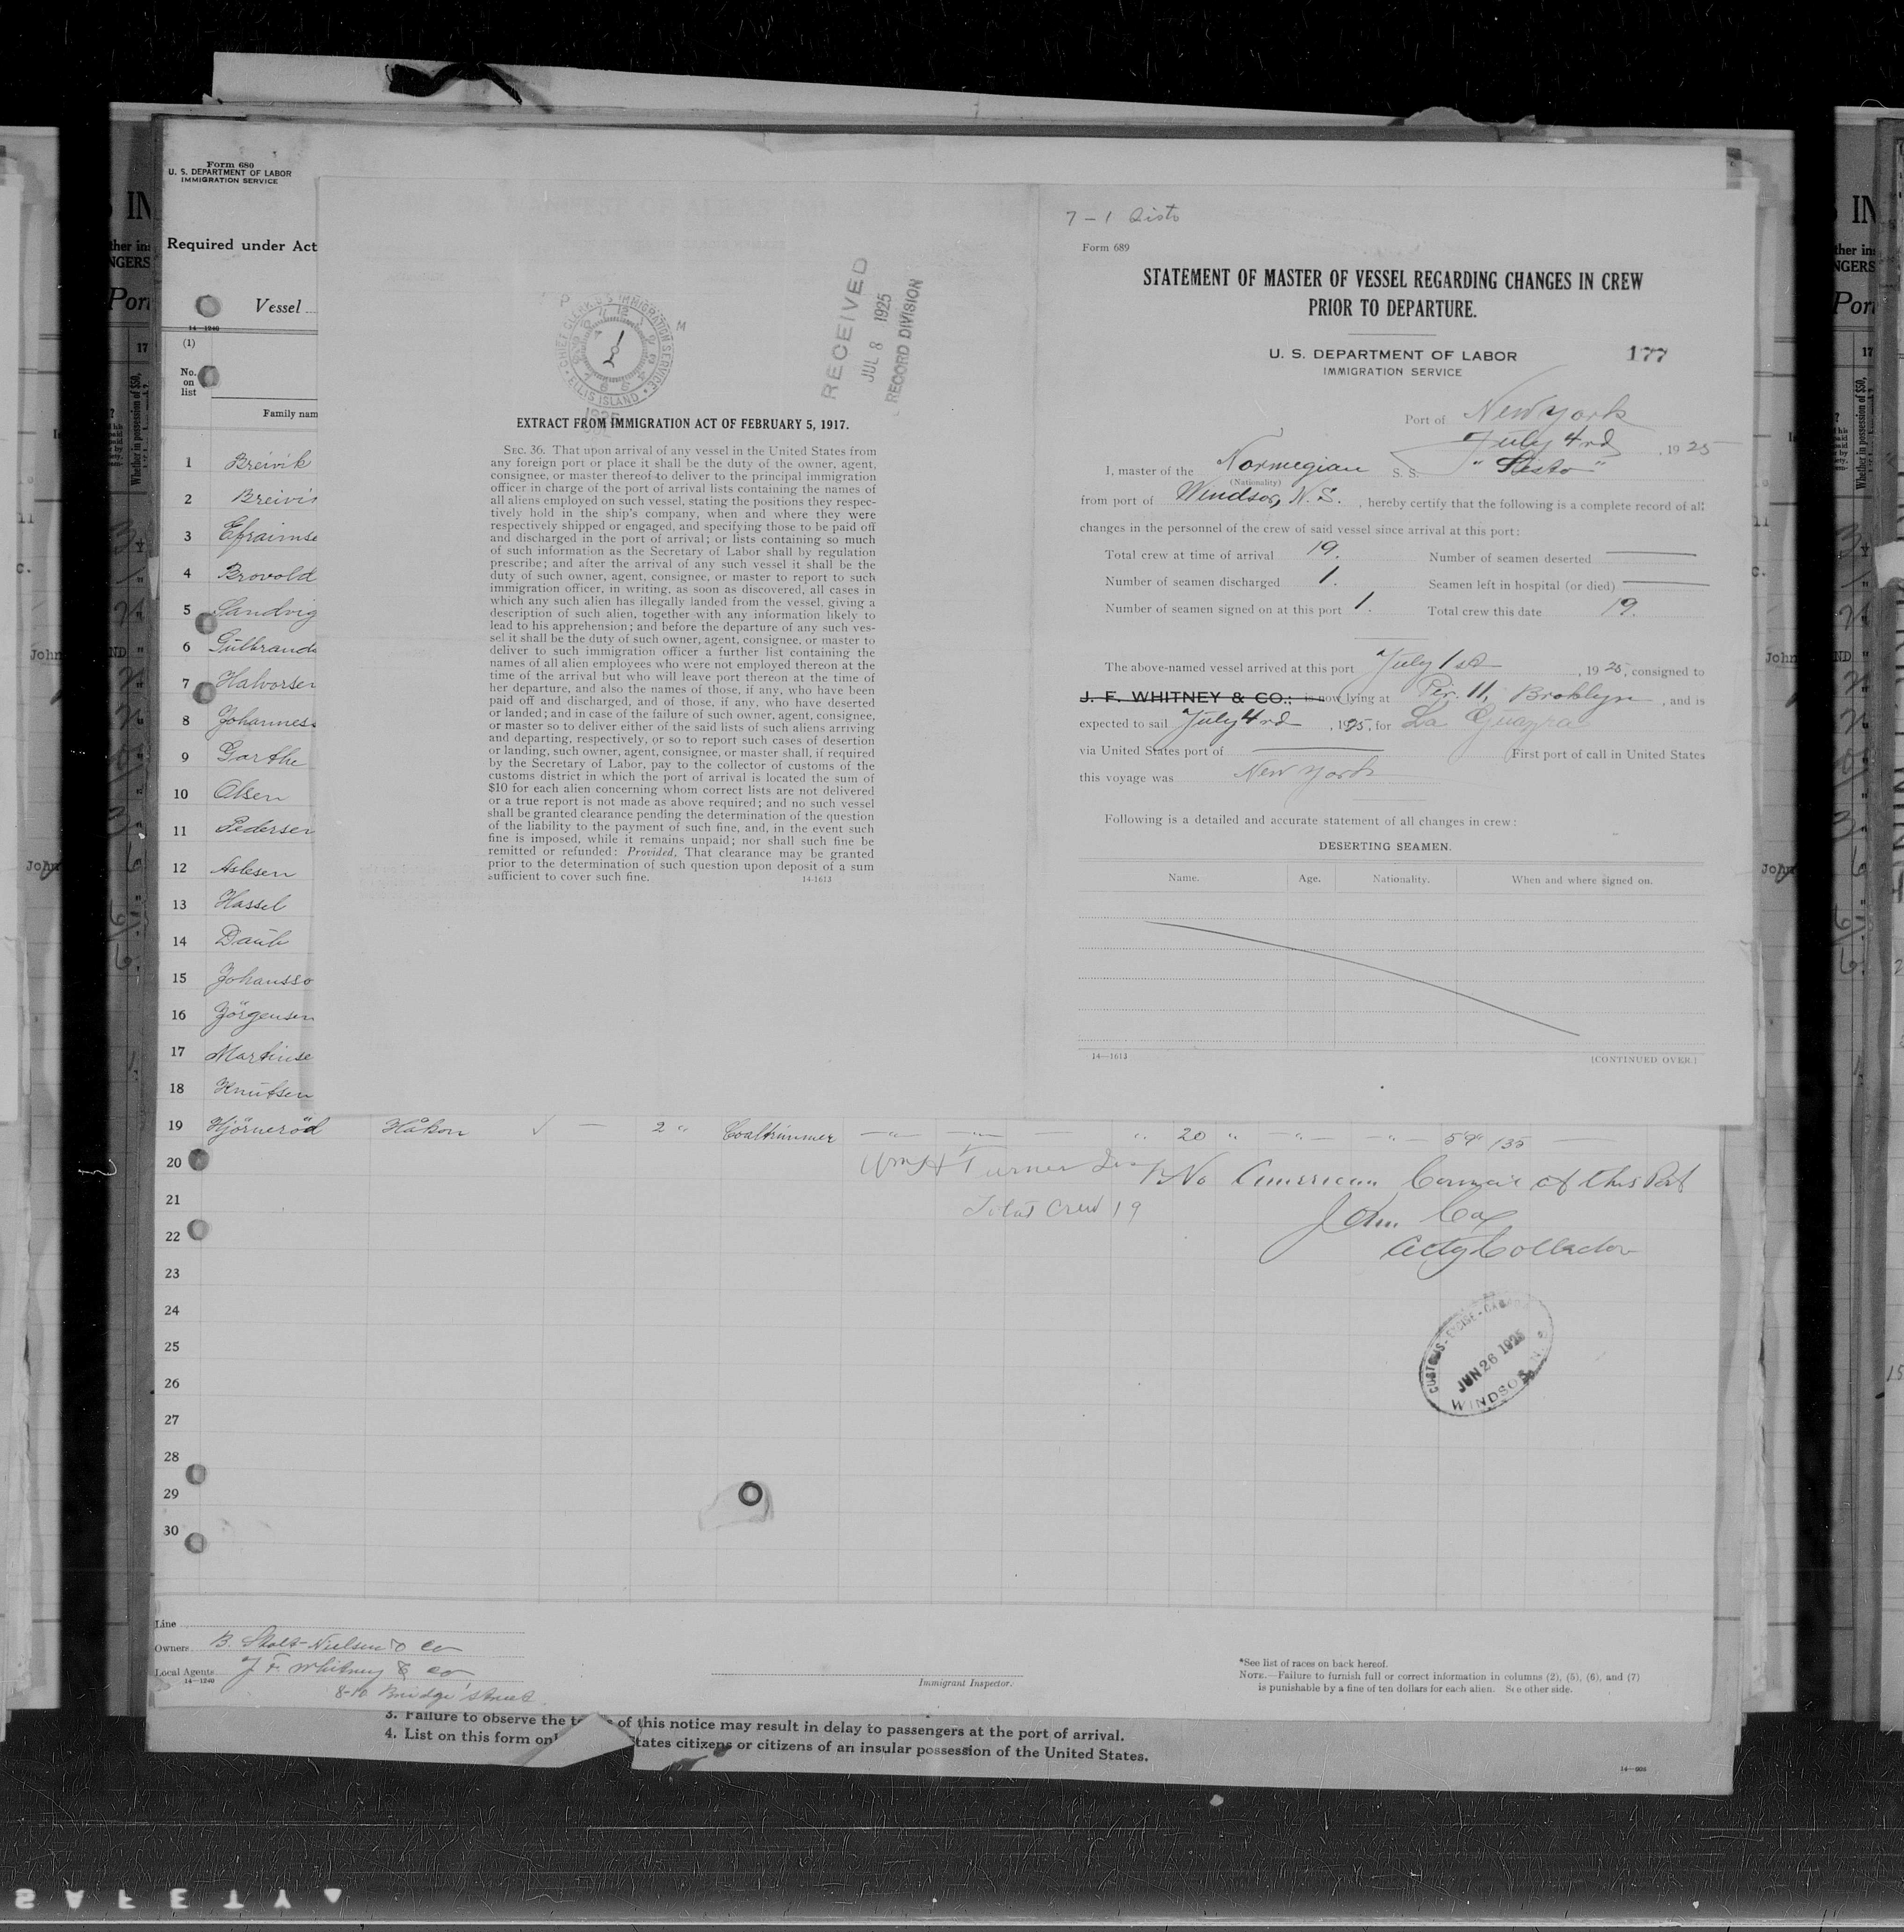 Form 680
U. S. DEPARTMENT OF LABOR
IMMIGRATION SERVICE
Required under Act
Vessel
14—1240
(1)
No.
on
list
Family nam
1 Breivik
2 Breivi
3 Efraimse
4 Brovold
5 Sandvig
6 Gulbrands
7 Halvorsen
8 Johanness
9 Garthe
10 Olsen
11 Pedersen
12 Aslesen
13 Hassel
14 Daub
15 Johansso
16 Jörgensen
17 Martinse
18 Knutsen
19 Hjörneröd Håkon — 2 " Coaltrimmer —"— —"— — " 20 " —"— —"— 5'9" 135
20
21
22
23
24
25
26
27
28
29
30
No American Consul at this Port
Total Crew 19
John Cox
Actg Collector
CUSTOMS - EXCISE - CANADA
JUN 26 1925
WINDSOR, N. S.
Line
Owners B. Stolt-Nielsen & Co
Local Agents J F. Whitney & Co
14—1240
8-10 Bridge street
Immigrant Inspector.
*See list of races on back hereof.
NOTE.—Failure to furnish full or correct information in columns (2), (5), (6), and (7)
is punishable by a fine of ten dollars for each alien. See other side.
3. Failure to observe the of this notice may result in delay to passengers at the port of arrival.
4. List on this form onl tates citizens or citizens of an insular possession of the United States.
CHIEF CLERK'S IMMIGRATION SERVICE
ELLIS ISLAND
1925
RECEIVED
JUL 8 1925
RECORD DIVISION
EXTRACT FROM IMMIGRATION ACT OF FEBRUARY 5, 1917.
SEC. 36. That upon arrival of any vessel in the United States from
any foreign port or place it shall be the duty of the owner, agent,
consignee, or master thereof to deliver to the principal immigration
officer in charge of the port of arrival lists containing the names of
all aliens employed on such vessel, stating the positions they respec-
tively hold in the ship's company, when and where they were
respectively shipped or engaged, and specifying those to be paid off
and discharged in the port of arrival; or lists containing so much
of such information as the Secretary of Labor shall by regulation
prescribe; and after the arrival of any such vessel it shall be the
duty of such owner, agent, consignee, or master to report to such
immigration officer, in writing, as soon as discovered, all cases in
which any such alien has illegally landed from the vessel, giving a
description of such alien, together with any information likely to
lead to his apprehension; and before the departure of any such ves-
sel it shall be the duty of such owner, agent, consignee, or master to
deliver to such immigration officer a further list containing the
names of all alien employees who were not employed thereon at the
time of the arrival but who will leave port thereon at the time of
her departure, and also the names of those, if any, who have been
paid off and discharged, and of those, if any, who have deserted
or landed; and in case of the failure of such owner, agent, consignee,
or master so to deliver either of the said lists of such aliens arriving
and departing, respectively, or so to report such cases of desertion
or landing, such owner, agent, consignee, or master shall, if required
by the Secretary of Labor, pay to the collector of customs of the
customs district in which the port of arrival is located the sum of
$10 for each alien concerning whom correct lists are not delivered
or a true report is not made as above required; and no such vessel
shall be granted clearance pending the determination of the question
of the liability to the payment of such fine, and, in the event such
fine is imposed, while it remains unpaid; nor shall such fine be
remitted or refunded: Provided, That clearance may be granted
prior to the determination of such question upon deposit of a sum
sufficient to cover such fine. 14-1613
7 - 1
Form 689
STATEMENT OF MASTER OF VESSEL REGARDING CHANGES IN CREW
PRIOR TO DEPARTURE.
U. S. DEPARTMENT OF LABOR
IMMIGRATION SERVICE
177
Port of New York
July 4rd, 1925
I, master of the Norwegian S. S. "Sesto"
(Nationality)
from port of Windsor, N. S., hereby certify that the following is a complete record of all
changes in the personnel of the crew of said vessel since arrival at this port:
Total crew at time of arrival 19. Number of seamen deserted —
Number of seamen discharged 1. Seamen left in hospital (or died) —
Number of seamen signed on at this port 1. Total crew this date 19.
The above-named vessel arrived at this port July 1st, 1925, consigned to
J. F. WHITNEY & CO.; is now lying at Pir. 11, Broklyn, and is
expected to sail July 4rd, 1925, for La Guayra
via United States port of — First port of call in United States
this voyage was New York
Following is a detailed and accurate statement of all changes in crew:
DESERTING SEAMEN.
Name. Age. Nationality. When and where signed on.
14—1613 (CONTINUED OVER.)
SAFETY